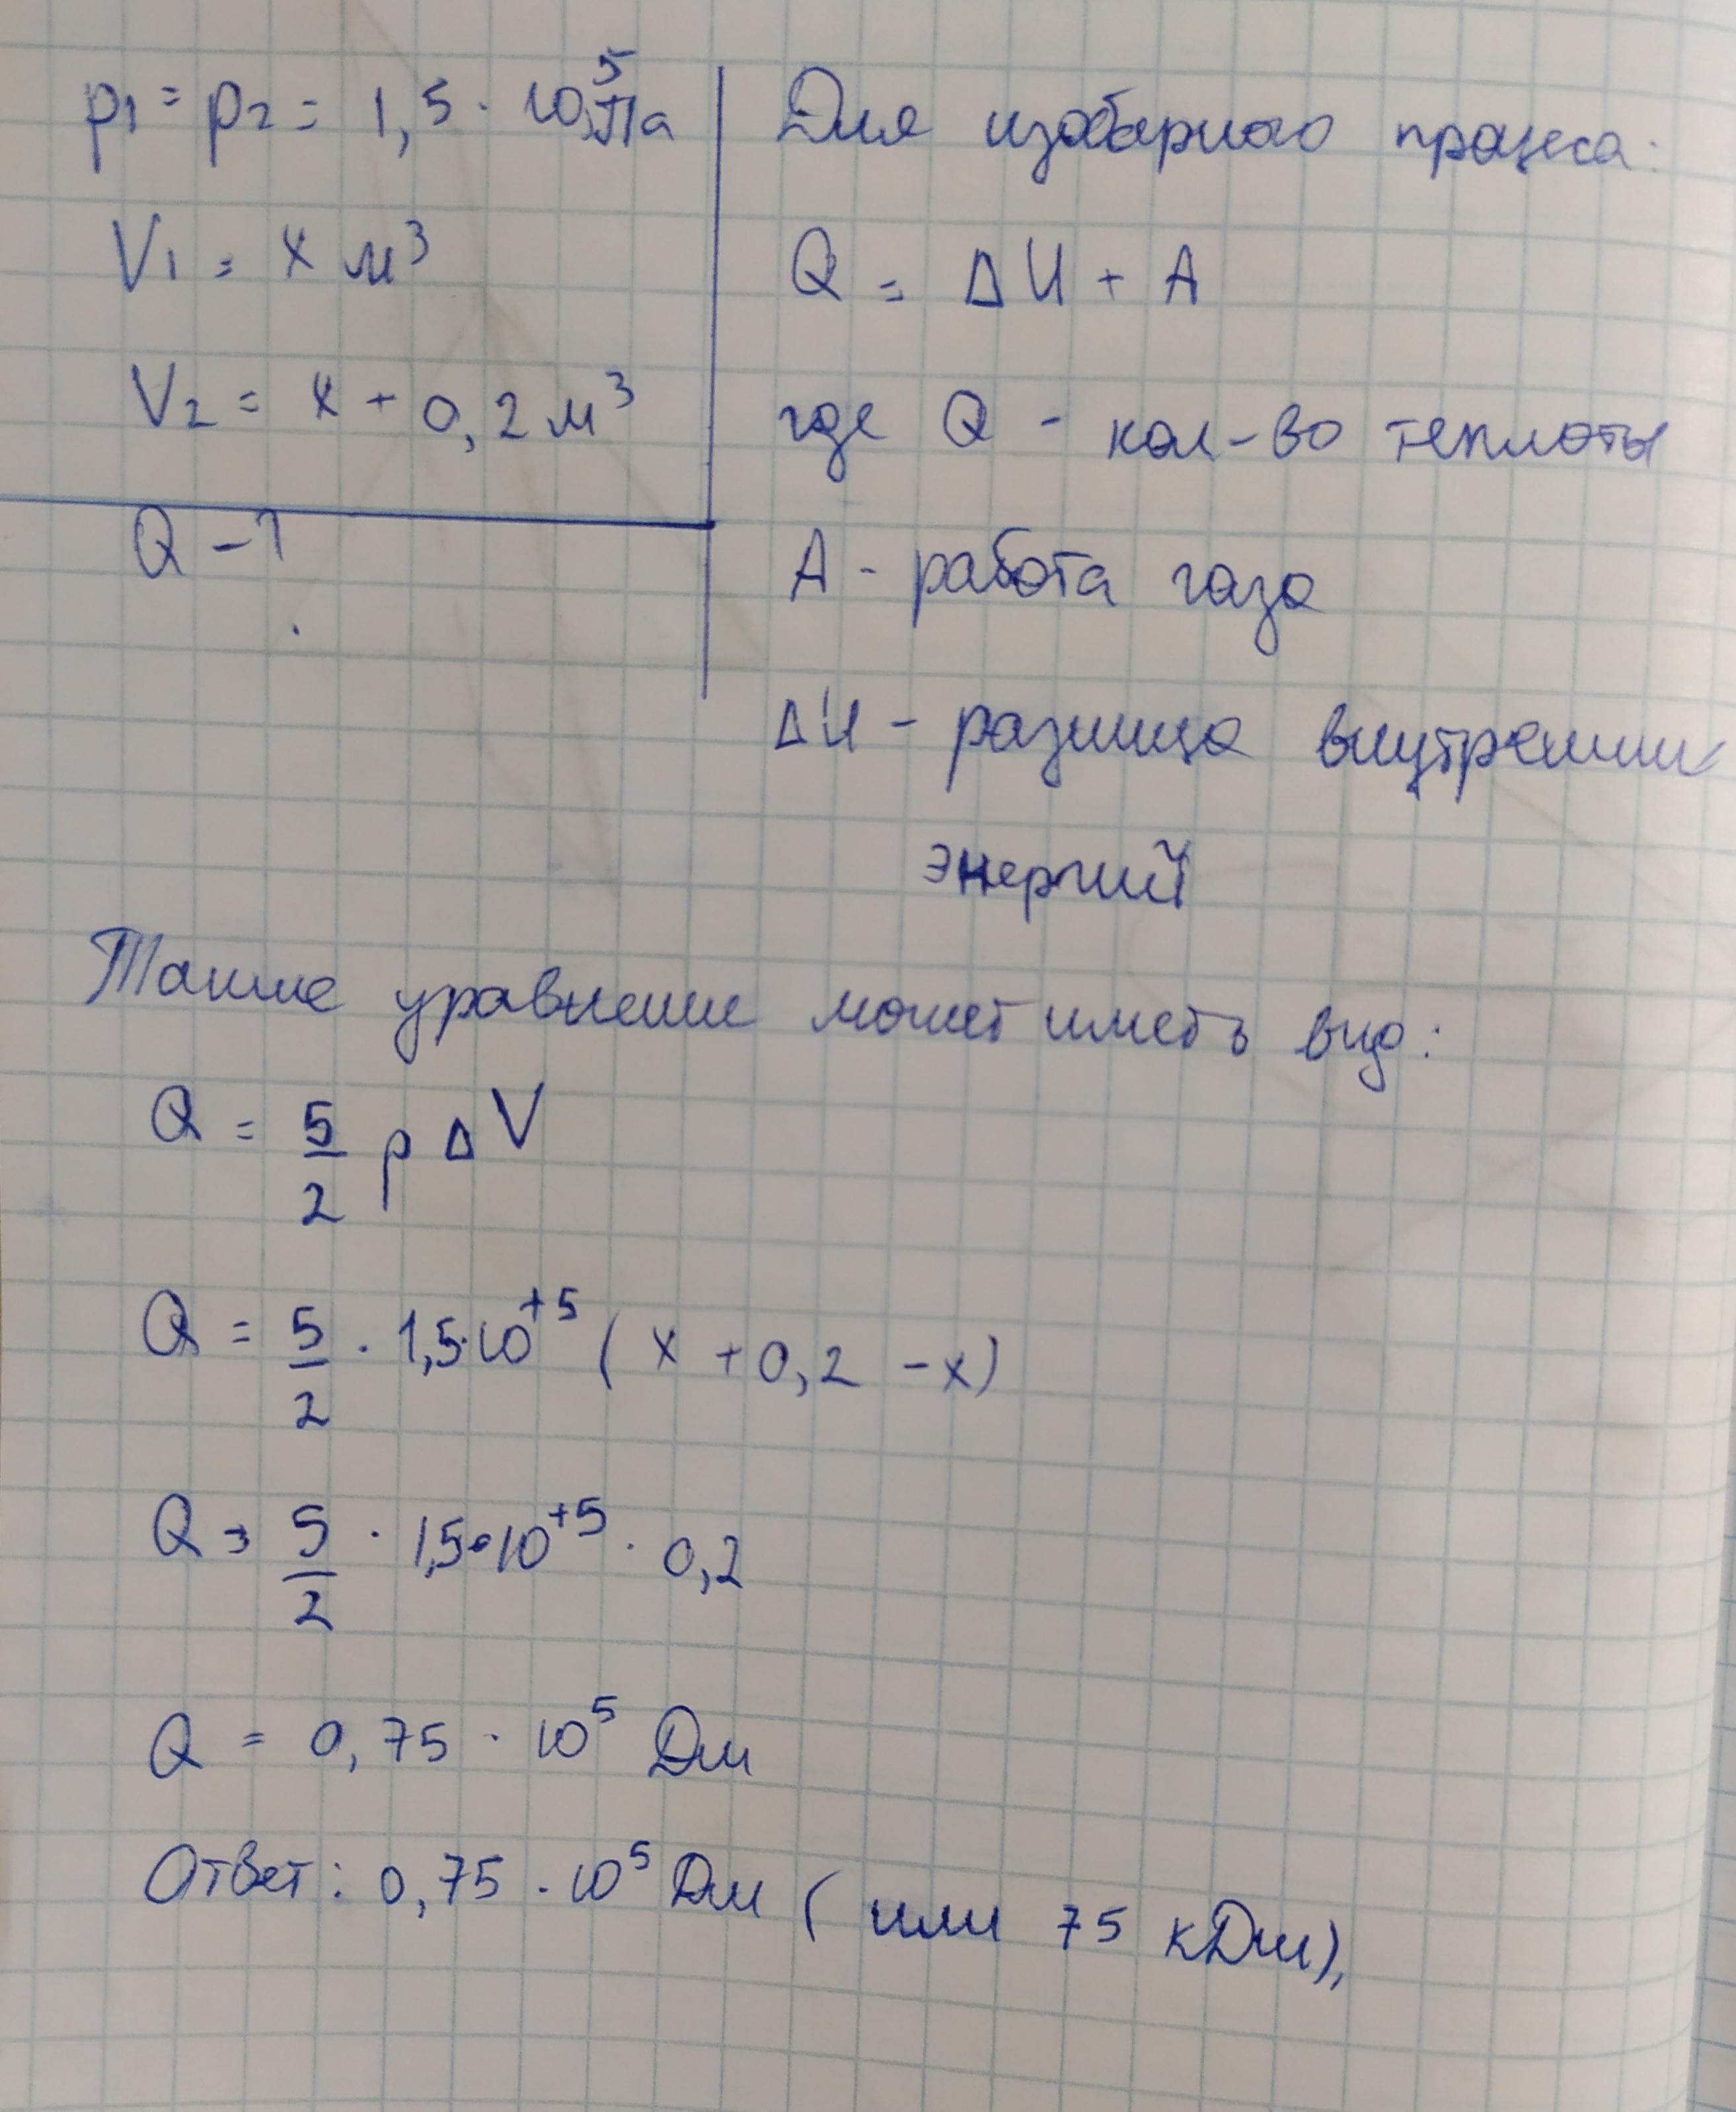 p1 = p2 = 1,5 · 10^5 Па
V1 = x м³
V2 = x + 0,2 м³
Q - ?
Для изобарного процеса:
Q = ΔU + A
где Q - кол-во теплоты
A - работа газа
ΔU - разница внутренних
энергий
Также уравнение может иметь вид:
Q = 5/2 p Δ V
Q = 5/2 · 1,5·10^+5 ( x + 0,2 - x)
Q = 5/2 · 1,5·10^+5 · 0,2
Q = 0,75 · 10^5 Дж
Ответ: 0,75 · 10^5 Дж ( или 75 кДж),